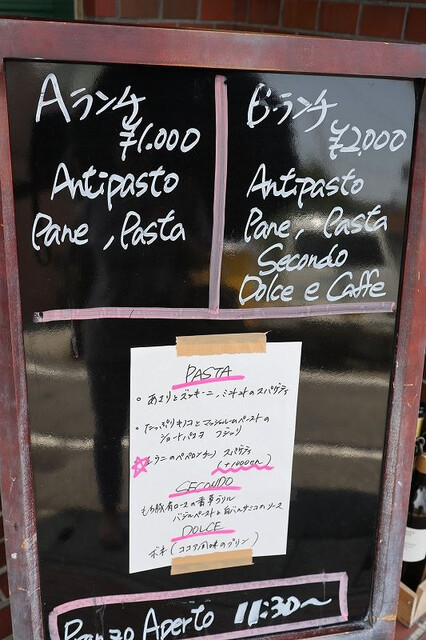 Aランチ
¥1.000
Antipasto
Pane, Pasta
Bランチ
¥2,000
Antipasto
Pane, Pasta
Secondo
Dolce e Caffe
PASTA
。あさりとズッキーニ、ミニトマトのスパゲティ
・たっぷりキノコとマッシュルームペーストの
ショートパスタ フジッリ
ウニのペペロンチーノ スパゲティ
(+1000円)
SECONDO
もち豚肩ロースの香草グリル
バジルペーストと白バルサミコのソース
DOLCE
ボネ(ココア風味のプリン)
Pranzo Aperto 11:30〜